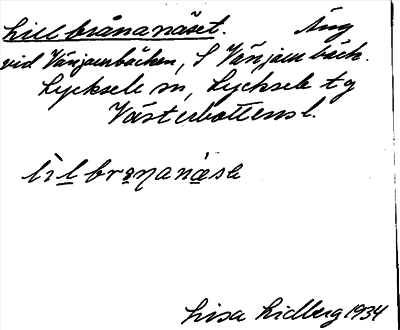 Lill brånanäset. Äng
vid Vänjaurbäcken, S Vänjaurbäck.
Lycksele sn, Lycksele tg
Västerbottens l.
lìlbrọnanäsə
Lisa Lidberg 1934